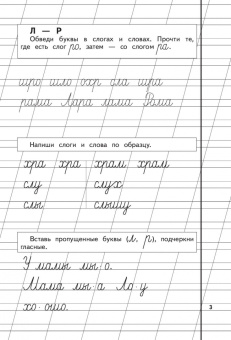 Л — Р
Обведи буквы в слогах и словах. Прочти те,
где есть слог ро, затем — со слогом ра.
шро шло охр сла шра
рама Лара лама Рама
Напиши слоги и слова по образцу.
хра хра храм храм
слу слух
слы слышу
Вставь пропущенные буквы (л, р), подчеркни
гласные.
У мамы мы·о.
Мама мы·а Ло·у
хо·ошо.
3